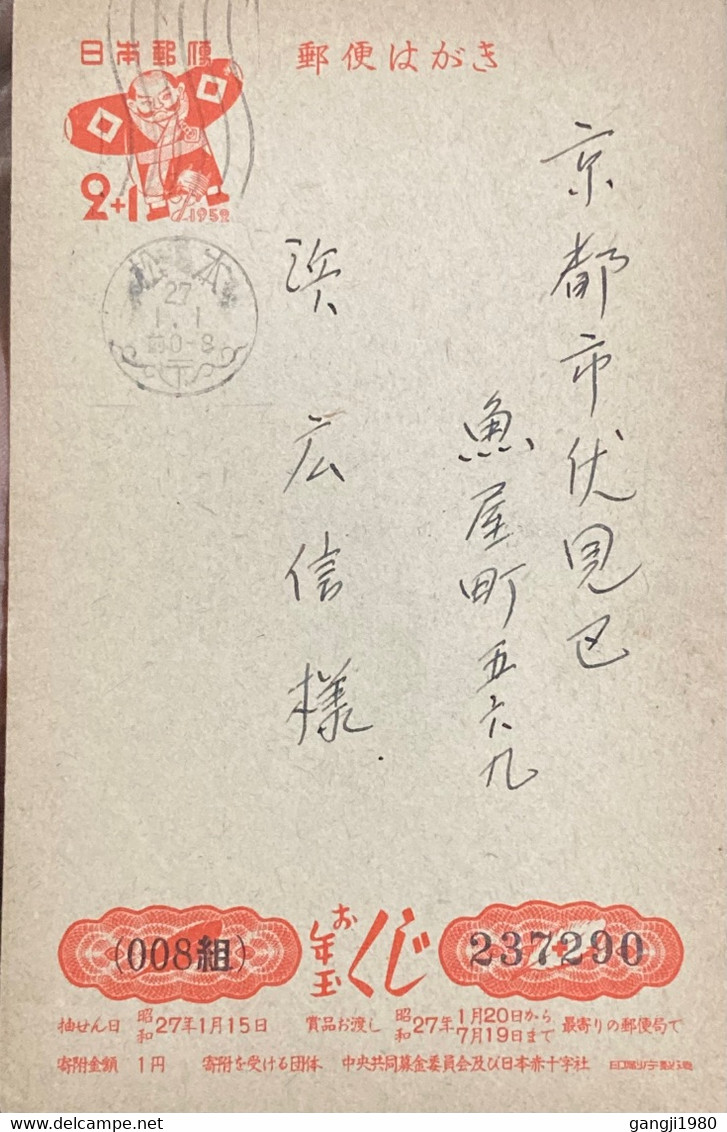 日本郵便
郵便はがき
2+1
1952
松本
27
1.1
前0-8
京都市伏見区
魚屋町五六九
浜広信様
(008組)
お年玉くじ
237290
抽せん日 昭和27年1月15日 賞品お渡し 昭和27年1月20日から7月19日まで 最寄りの郵便局で
寄附金額 1円 寄附を受ける団体 中央共同募金委員会及び日本赤十字社
delcampe.net
gangji1980